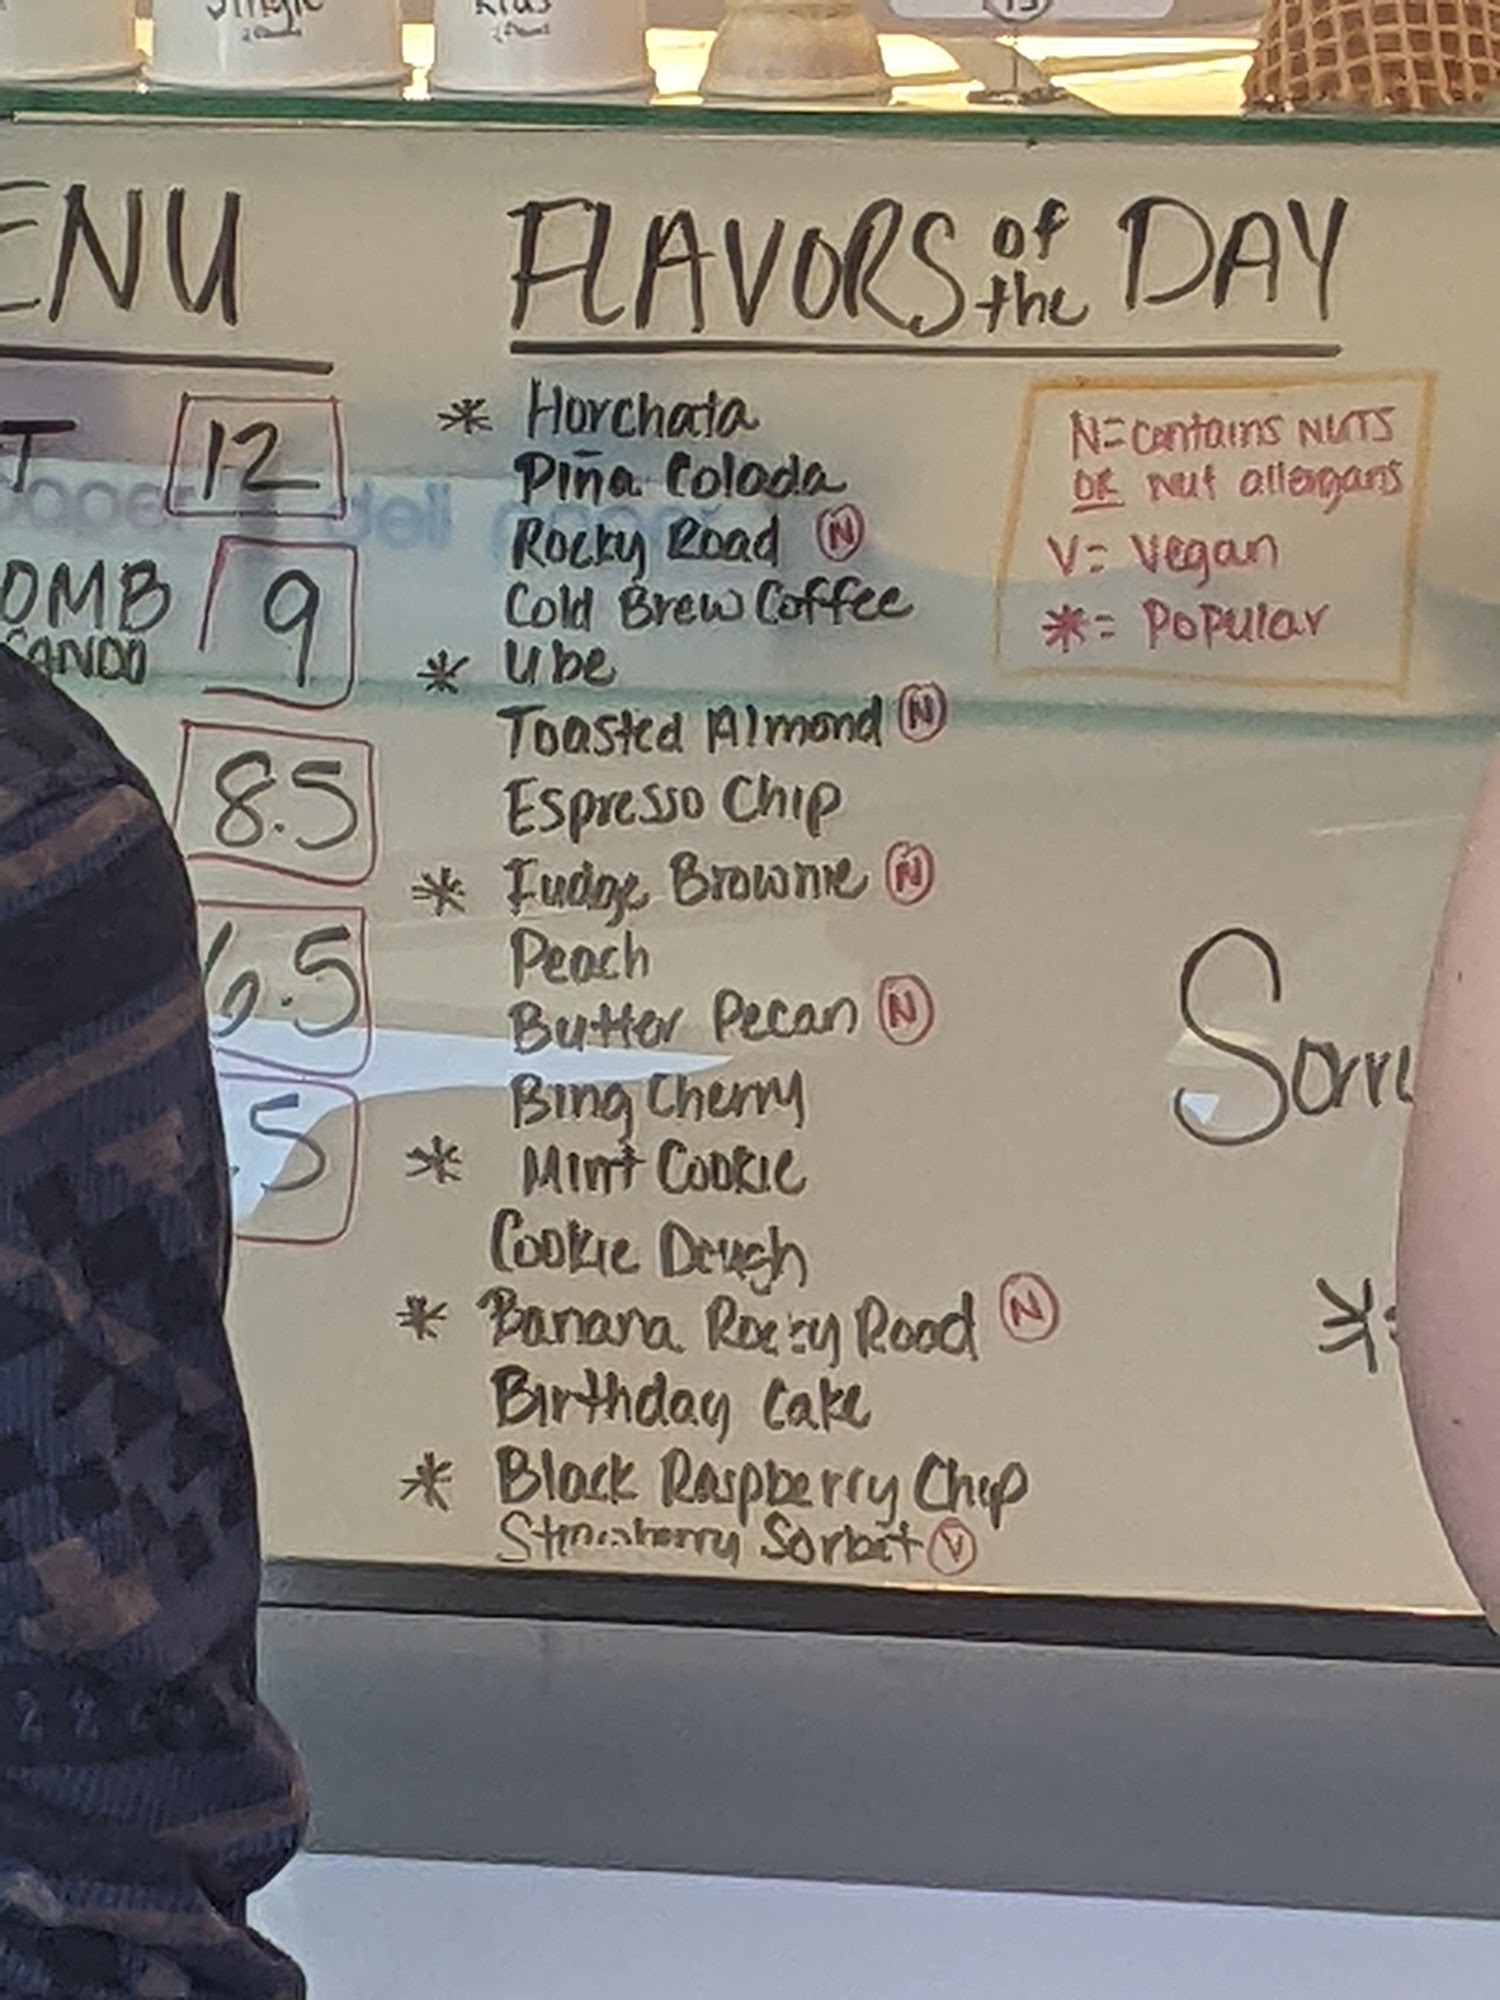 Single
Kids
ENU
T 12
OMB 9
SANDO
8.5
6.5
.5
FLAVORS of the DAY
* Horchata
Piña Colada
Rocky Road N
Cold Brew Coffee
* Ube
Toasted Almond N
Espresso Chip
* Fudge Brownie N
Peach
Butter Pecan N
Bing Cherry
* Mint Cookie
Cookie Dough
* Banana Rocky Road N
Birthday Cake
* Black Raspberry Chip
Strawberry Sorbet V
N=contains NUTS
OR nut allergans
V= Vegan
*= Popular
Sorr
*=
deli paper